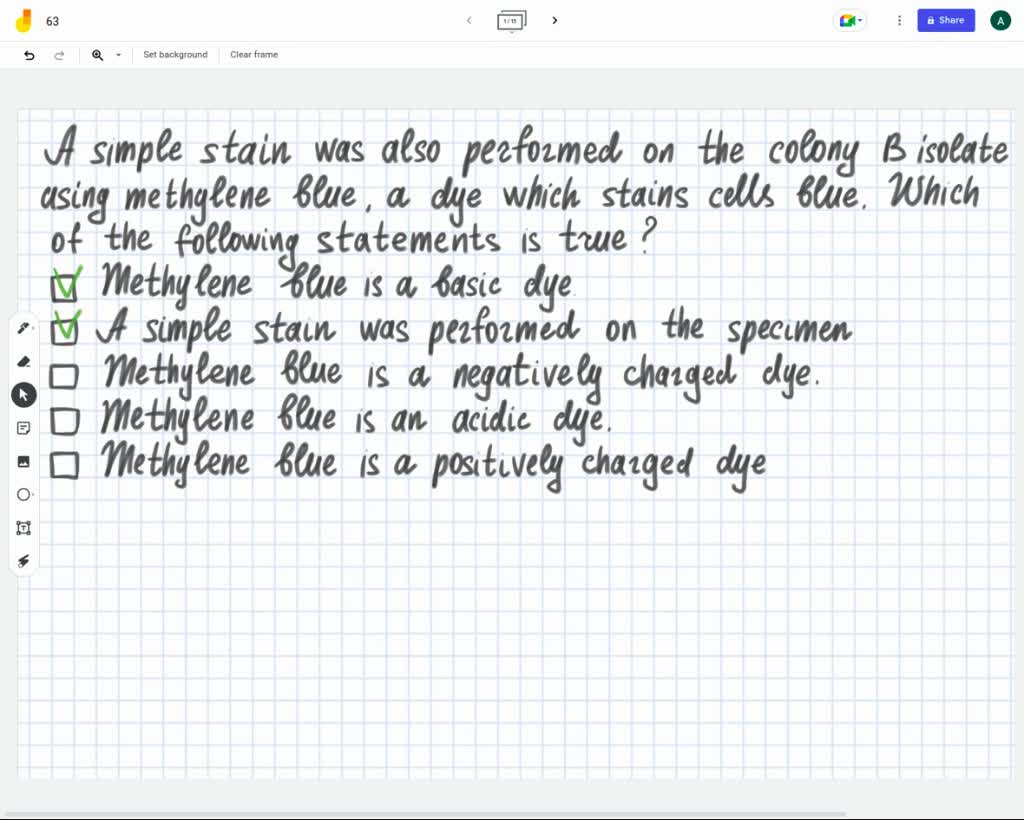 63
1/15
Share
A
Set background
Clear frame
A simple stain was also performed on the colony B isolate
using methylene blue, a dye which stains cells blue. Which
of the following statements is true?
Methylene blue is a basic dye
A simple stain was performed on the specimen
Methylene blue is a negatively charged dye.
Methylene blue is an acidic dye.
Methylene blue is a positively charged dye